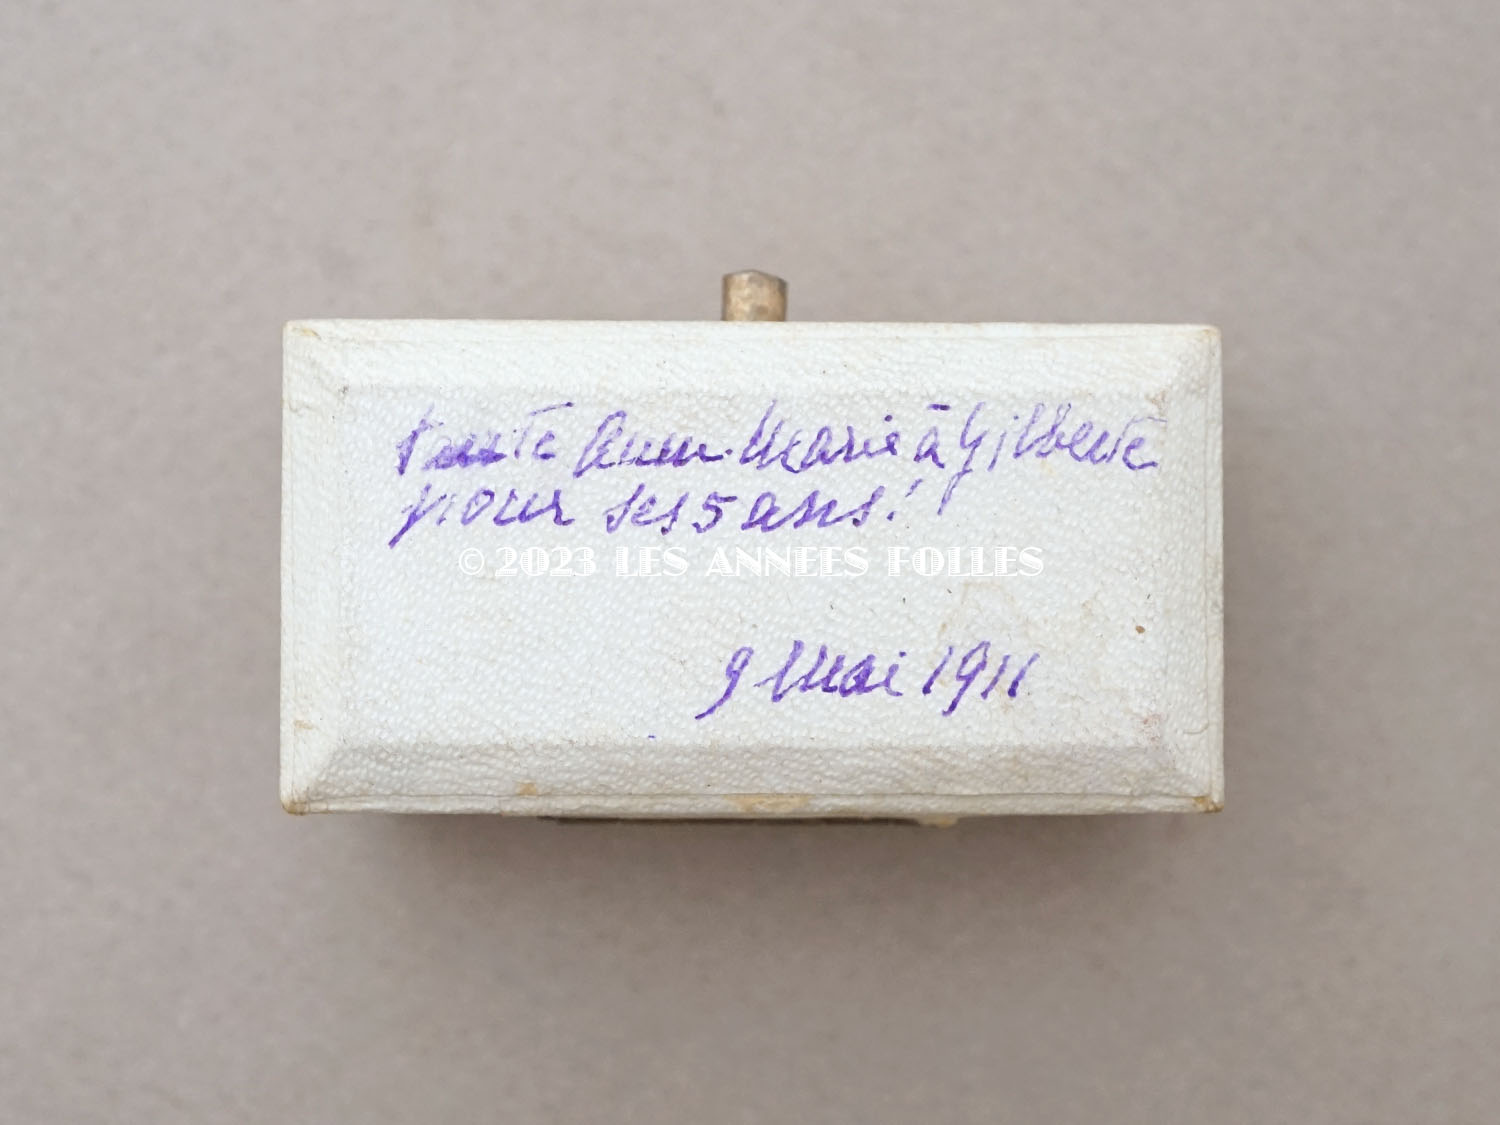 tante Anne-Marie à Gilberte
pour ses 5 ans!
© 2023 LES ANNEES FOLLES
9 Mai 1911